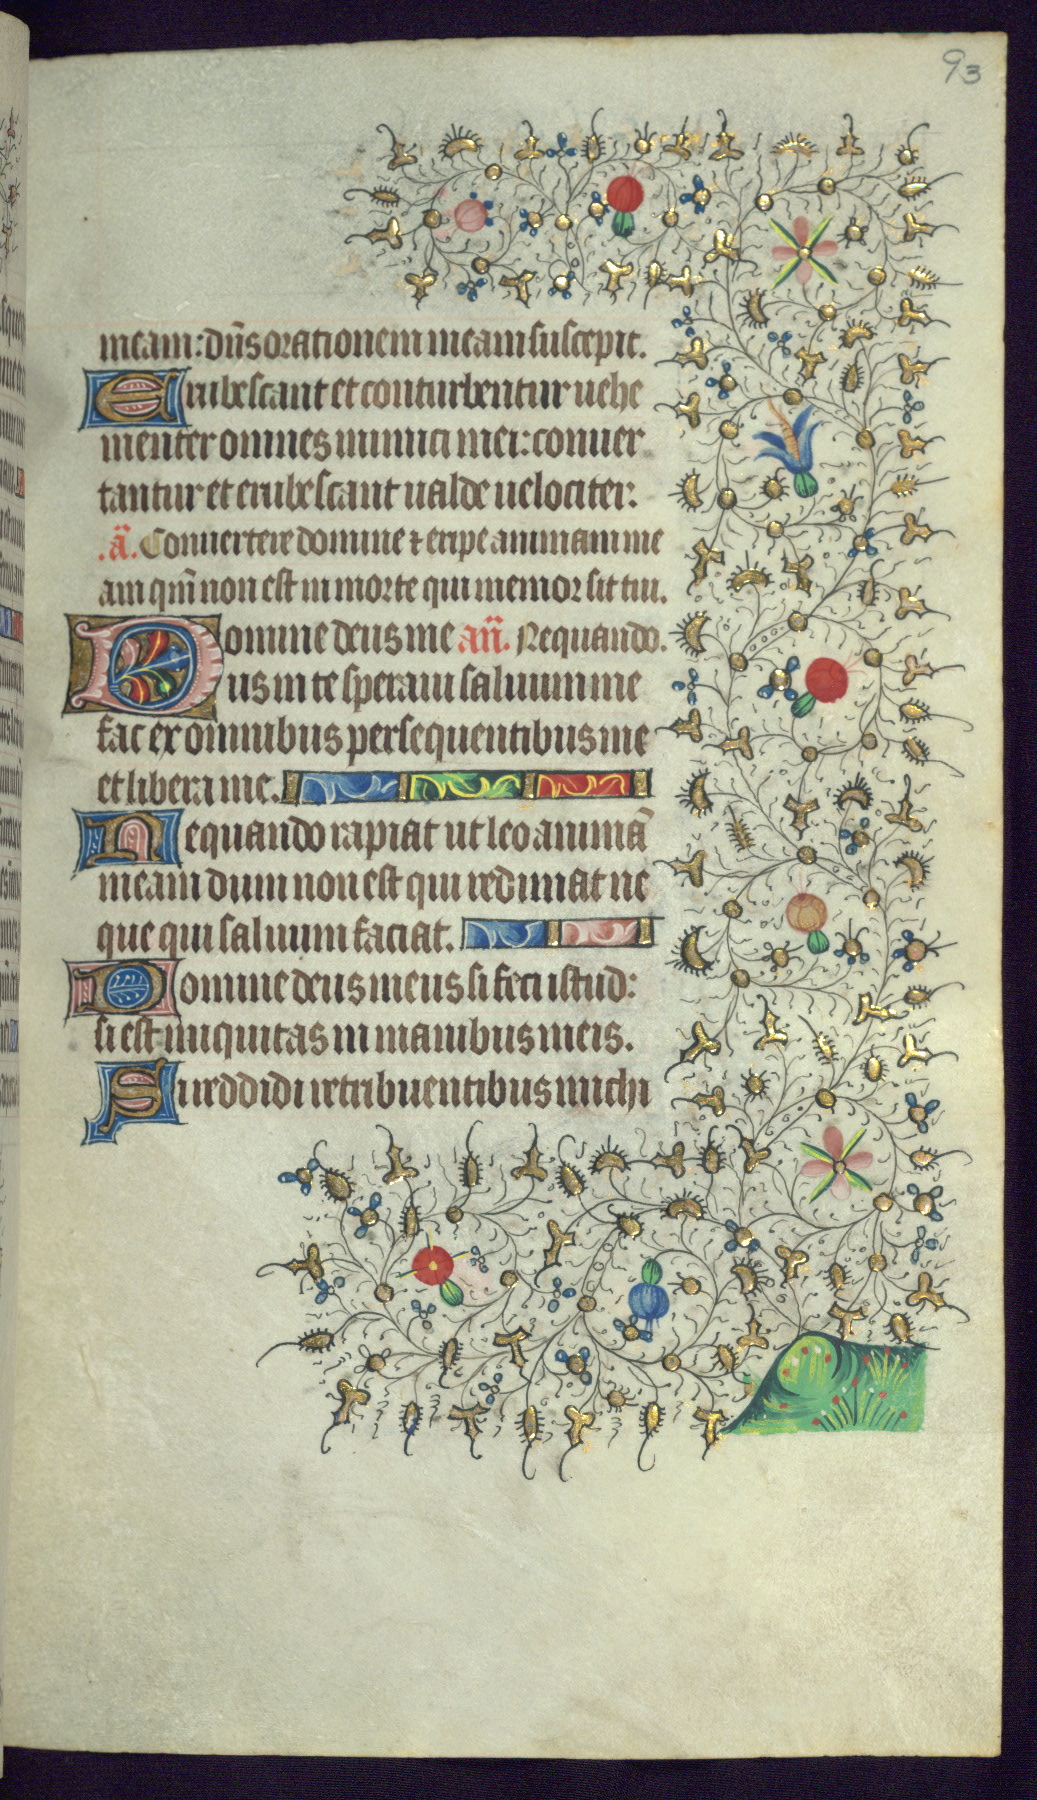 93
meam: dn̄s orationem meam suscepit.
Erubescant et conturbentur uehe
menter omnes inimici mei: conuer
tantur et erubescant ualde uelociter:
.a̅. Conuertere domine ⁊ eripe animam me
am qm̄ non est in morte qui memor sit tui.
Domine deus me an̄. Nequando.
us in te speraui saluum me
fac ex omnibus persequentibus me
et libera me.
Nequando rapiat ut leo animā
meam dum non est qui redimat ne
que qui saluum faciat.
Domine deus meus si feci istud:
si est iniquitas in manibus meis.
Si reddidi retribuentibus michi